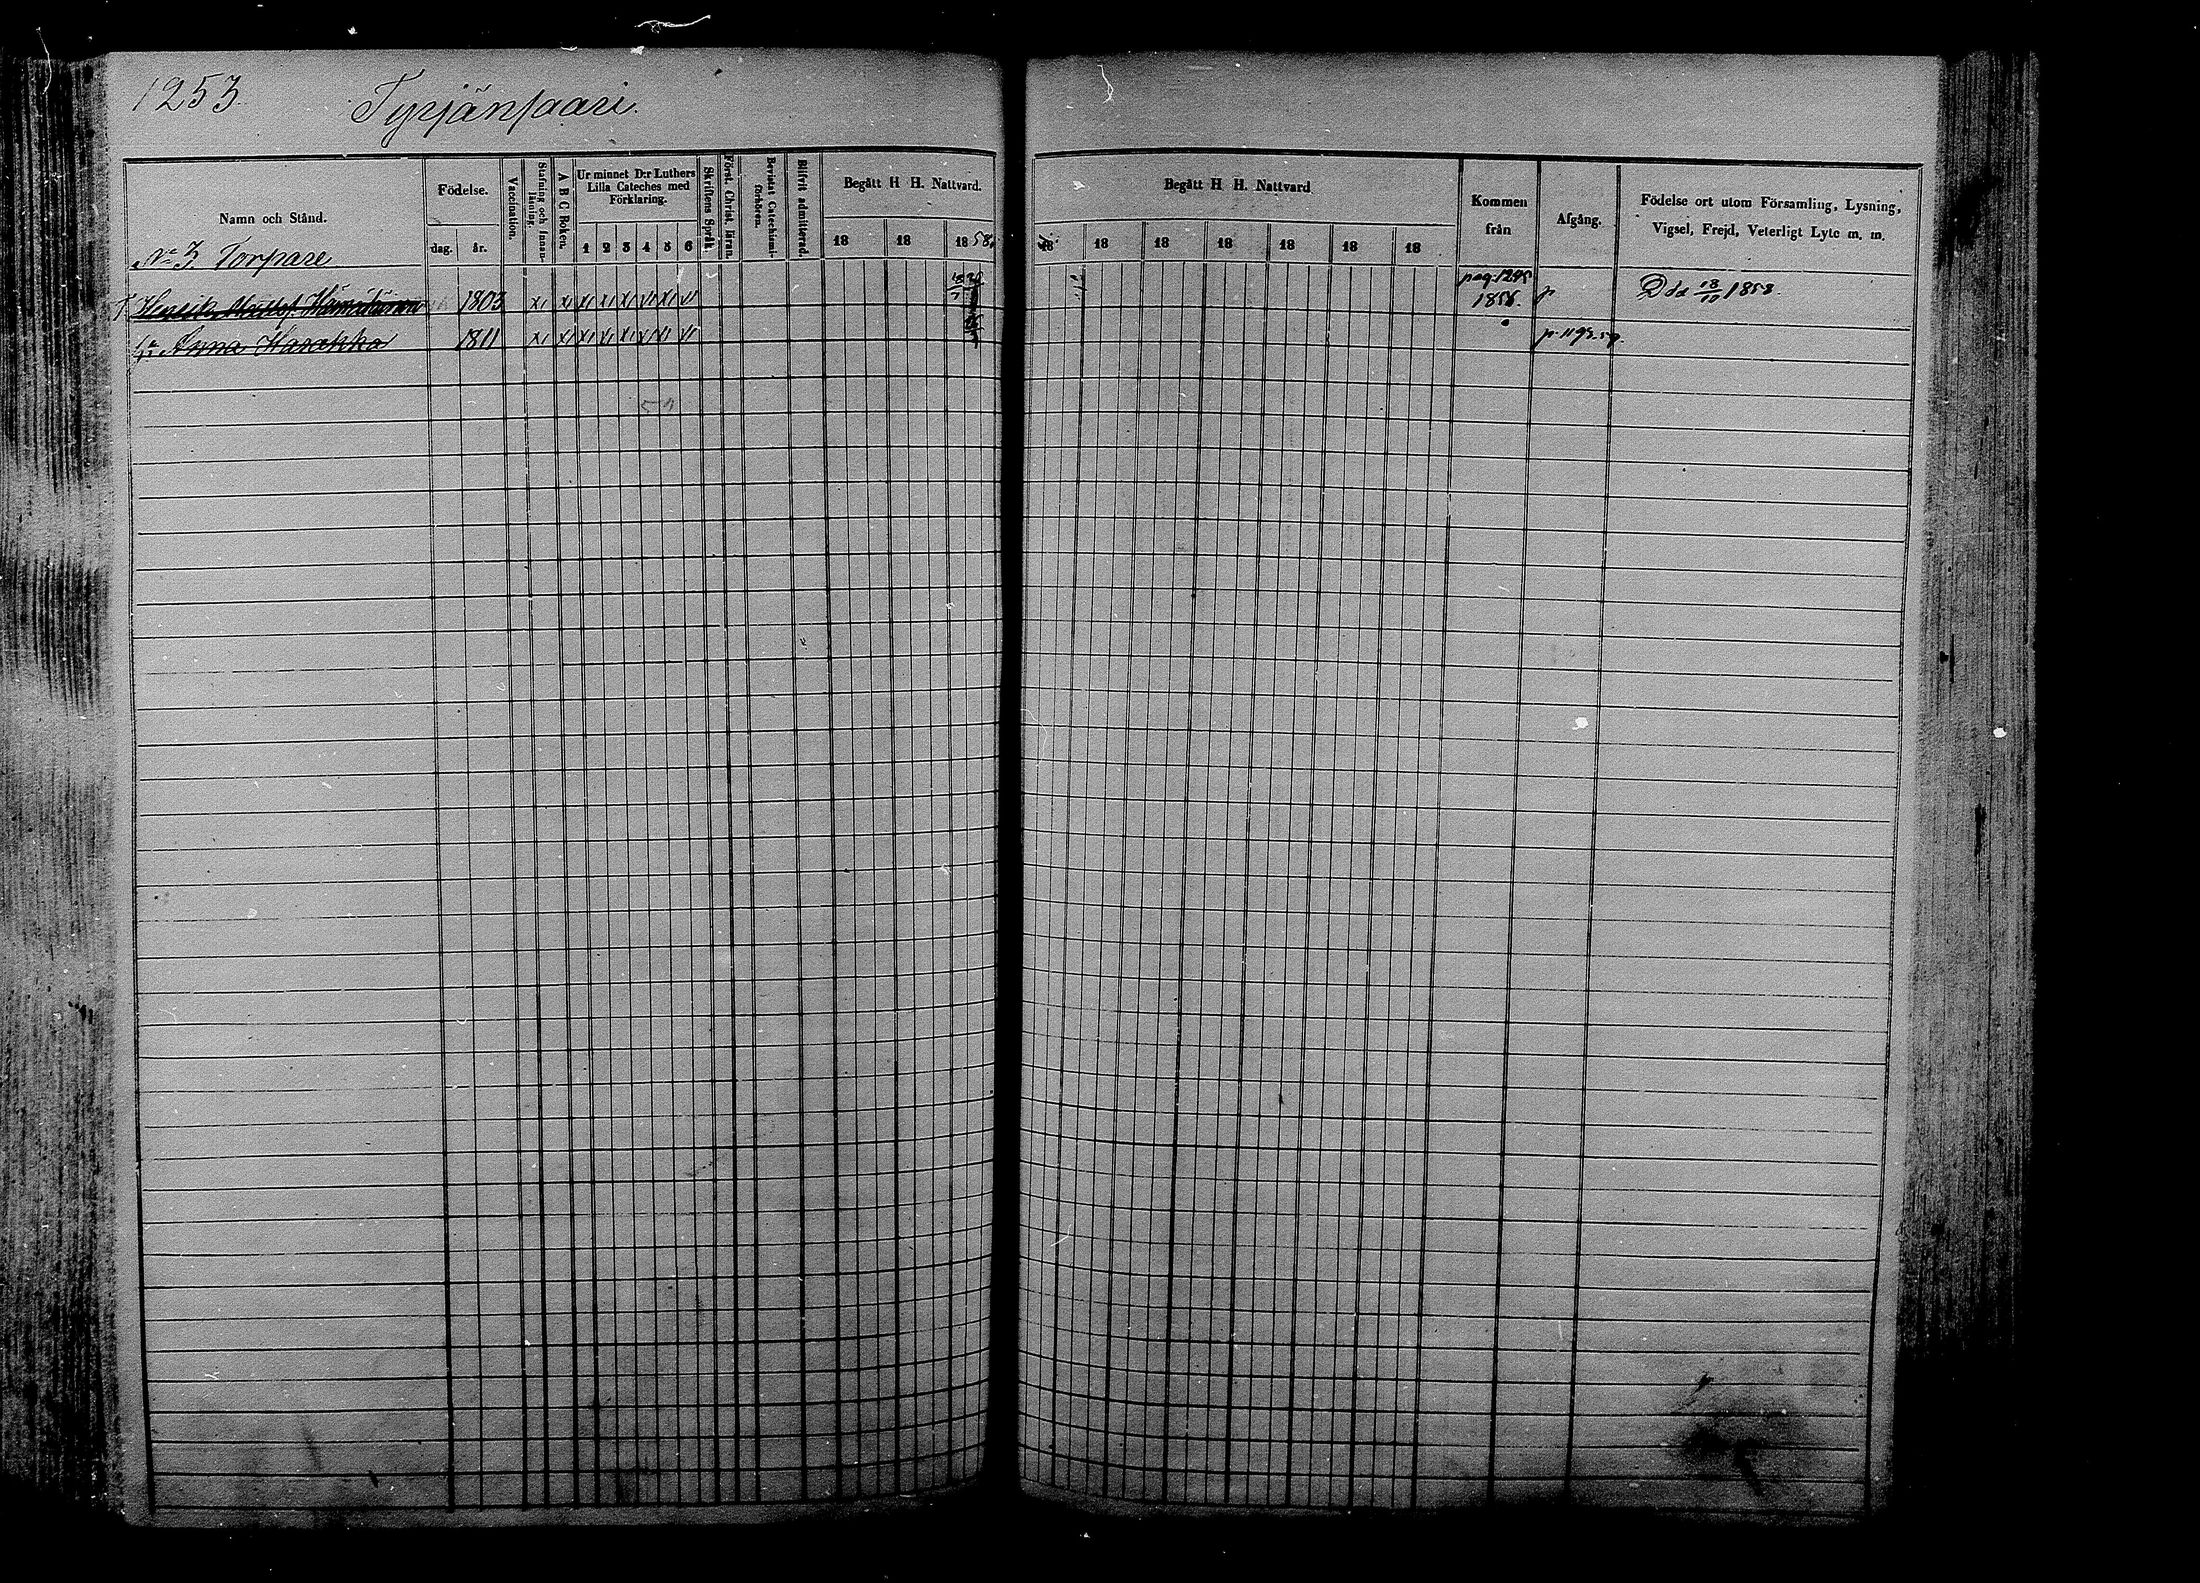 1253.
Tyrjänsaari.
Namn och Stånd.
Födelse.
dag. år.
Vaccination.
Stafning och Innan-läsning.
A B C Boken.
Ur minnet D:r Luthers Lilla Cateches med Förklaring.
1 2 3 4 5 6
Skriftens Språk.
Först. Christ. läran.
Bevistat Catechismi-förhören.
Blifvit admitterad.
Begått H H. Nattvard.
18 18 1858.
Begått H H. Nattvard
18 18 18 18 18 18 18
Kommen från
Afgång.
Födelse ort utom Församling, Lysning, Vigsel, Frejd, Veterligt Lyte m. m.
No 3. Torpare
T. Henrik Mattss. 1803 pag. 1295 1856. p Död 13/10 1858.
h: Anna Harakka 1811 p 1195.59.